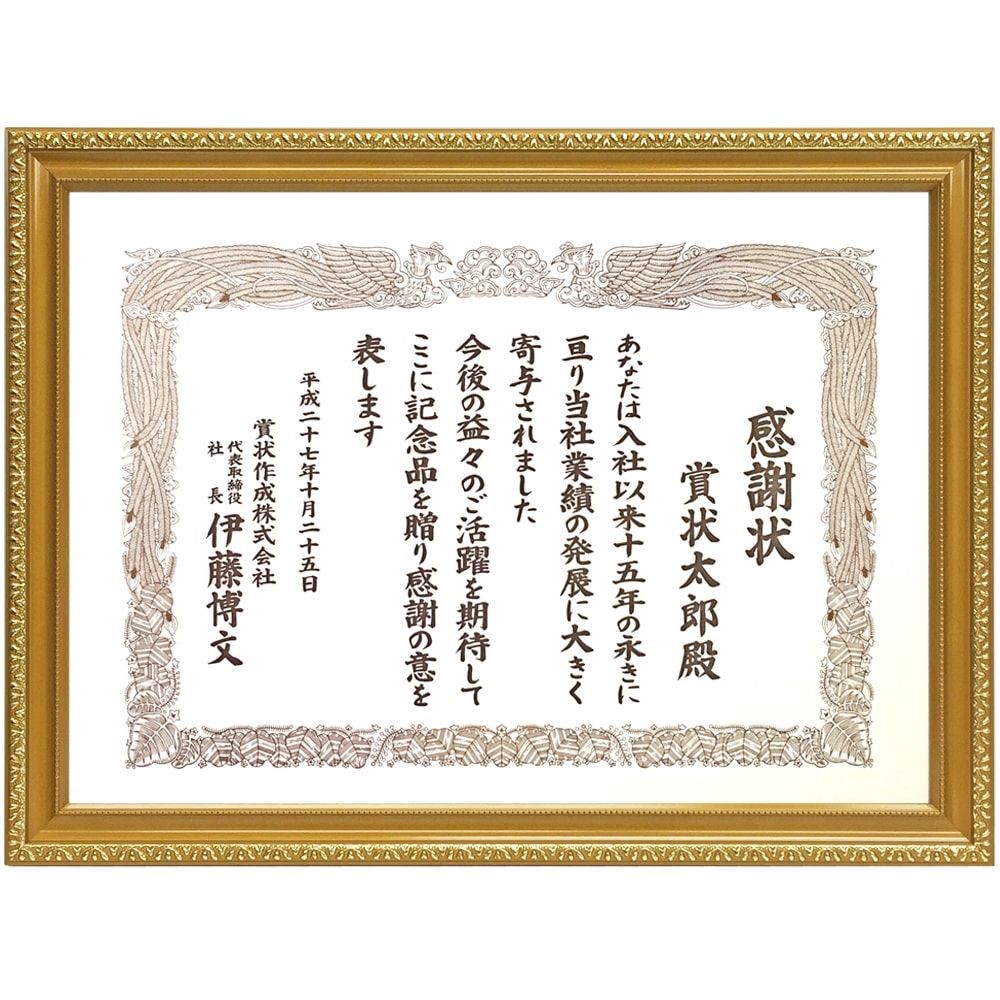 感謝状
賞状太郎殿
あなたは入社以来十五年の永きに
亘り当社業績の発展に大きく
寄与されました
今後の益々のご活躍を期待して
ここに記念品を贈り感謝の意を
表します
平成二十七年十月二十五日
賞状作成株式会社
代表取締役
社長
伊藤博文